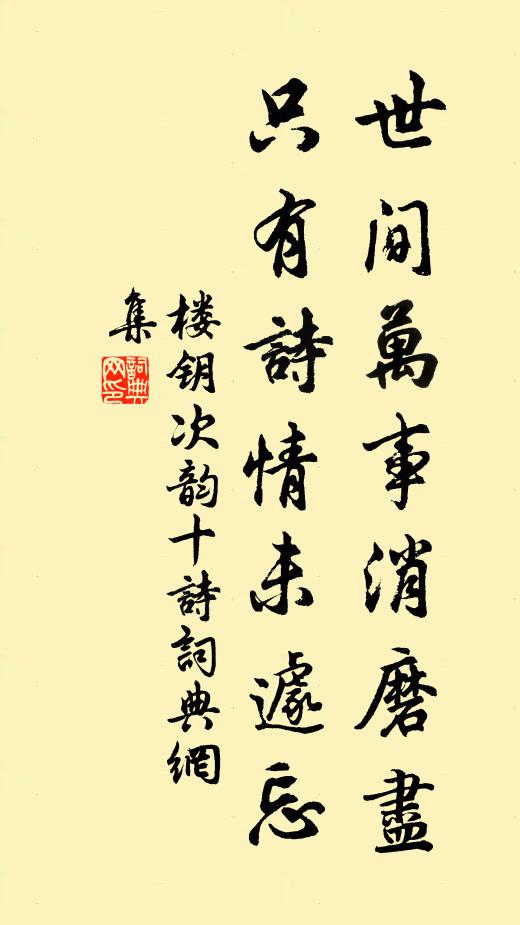 世间萬事消磨盡
只有詩情未遽忘
楼钥次韵十詩詞典網
集
詞典网印